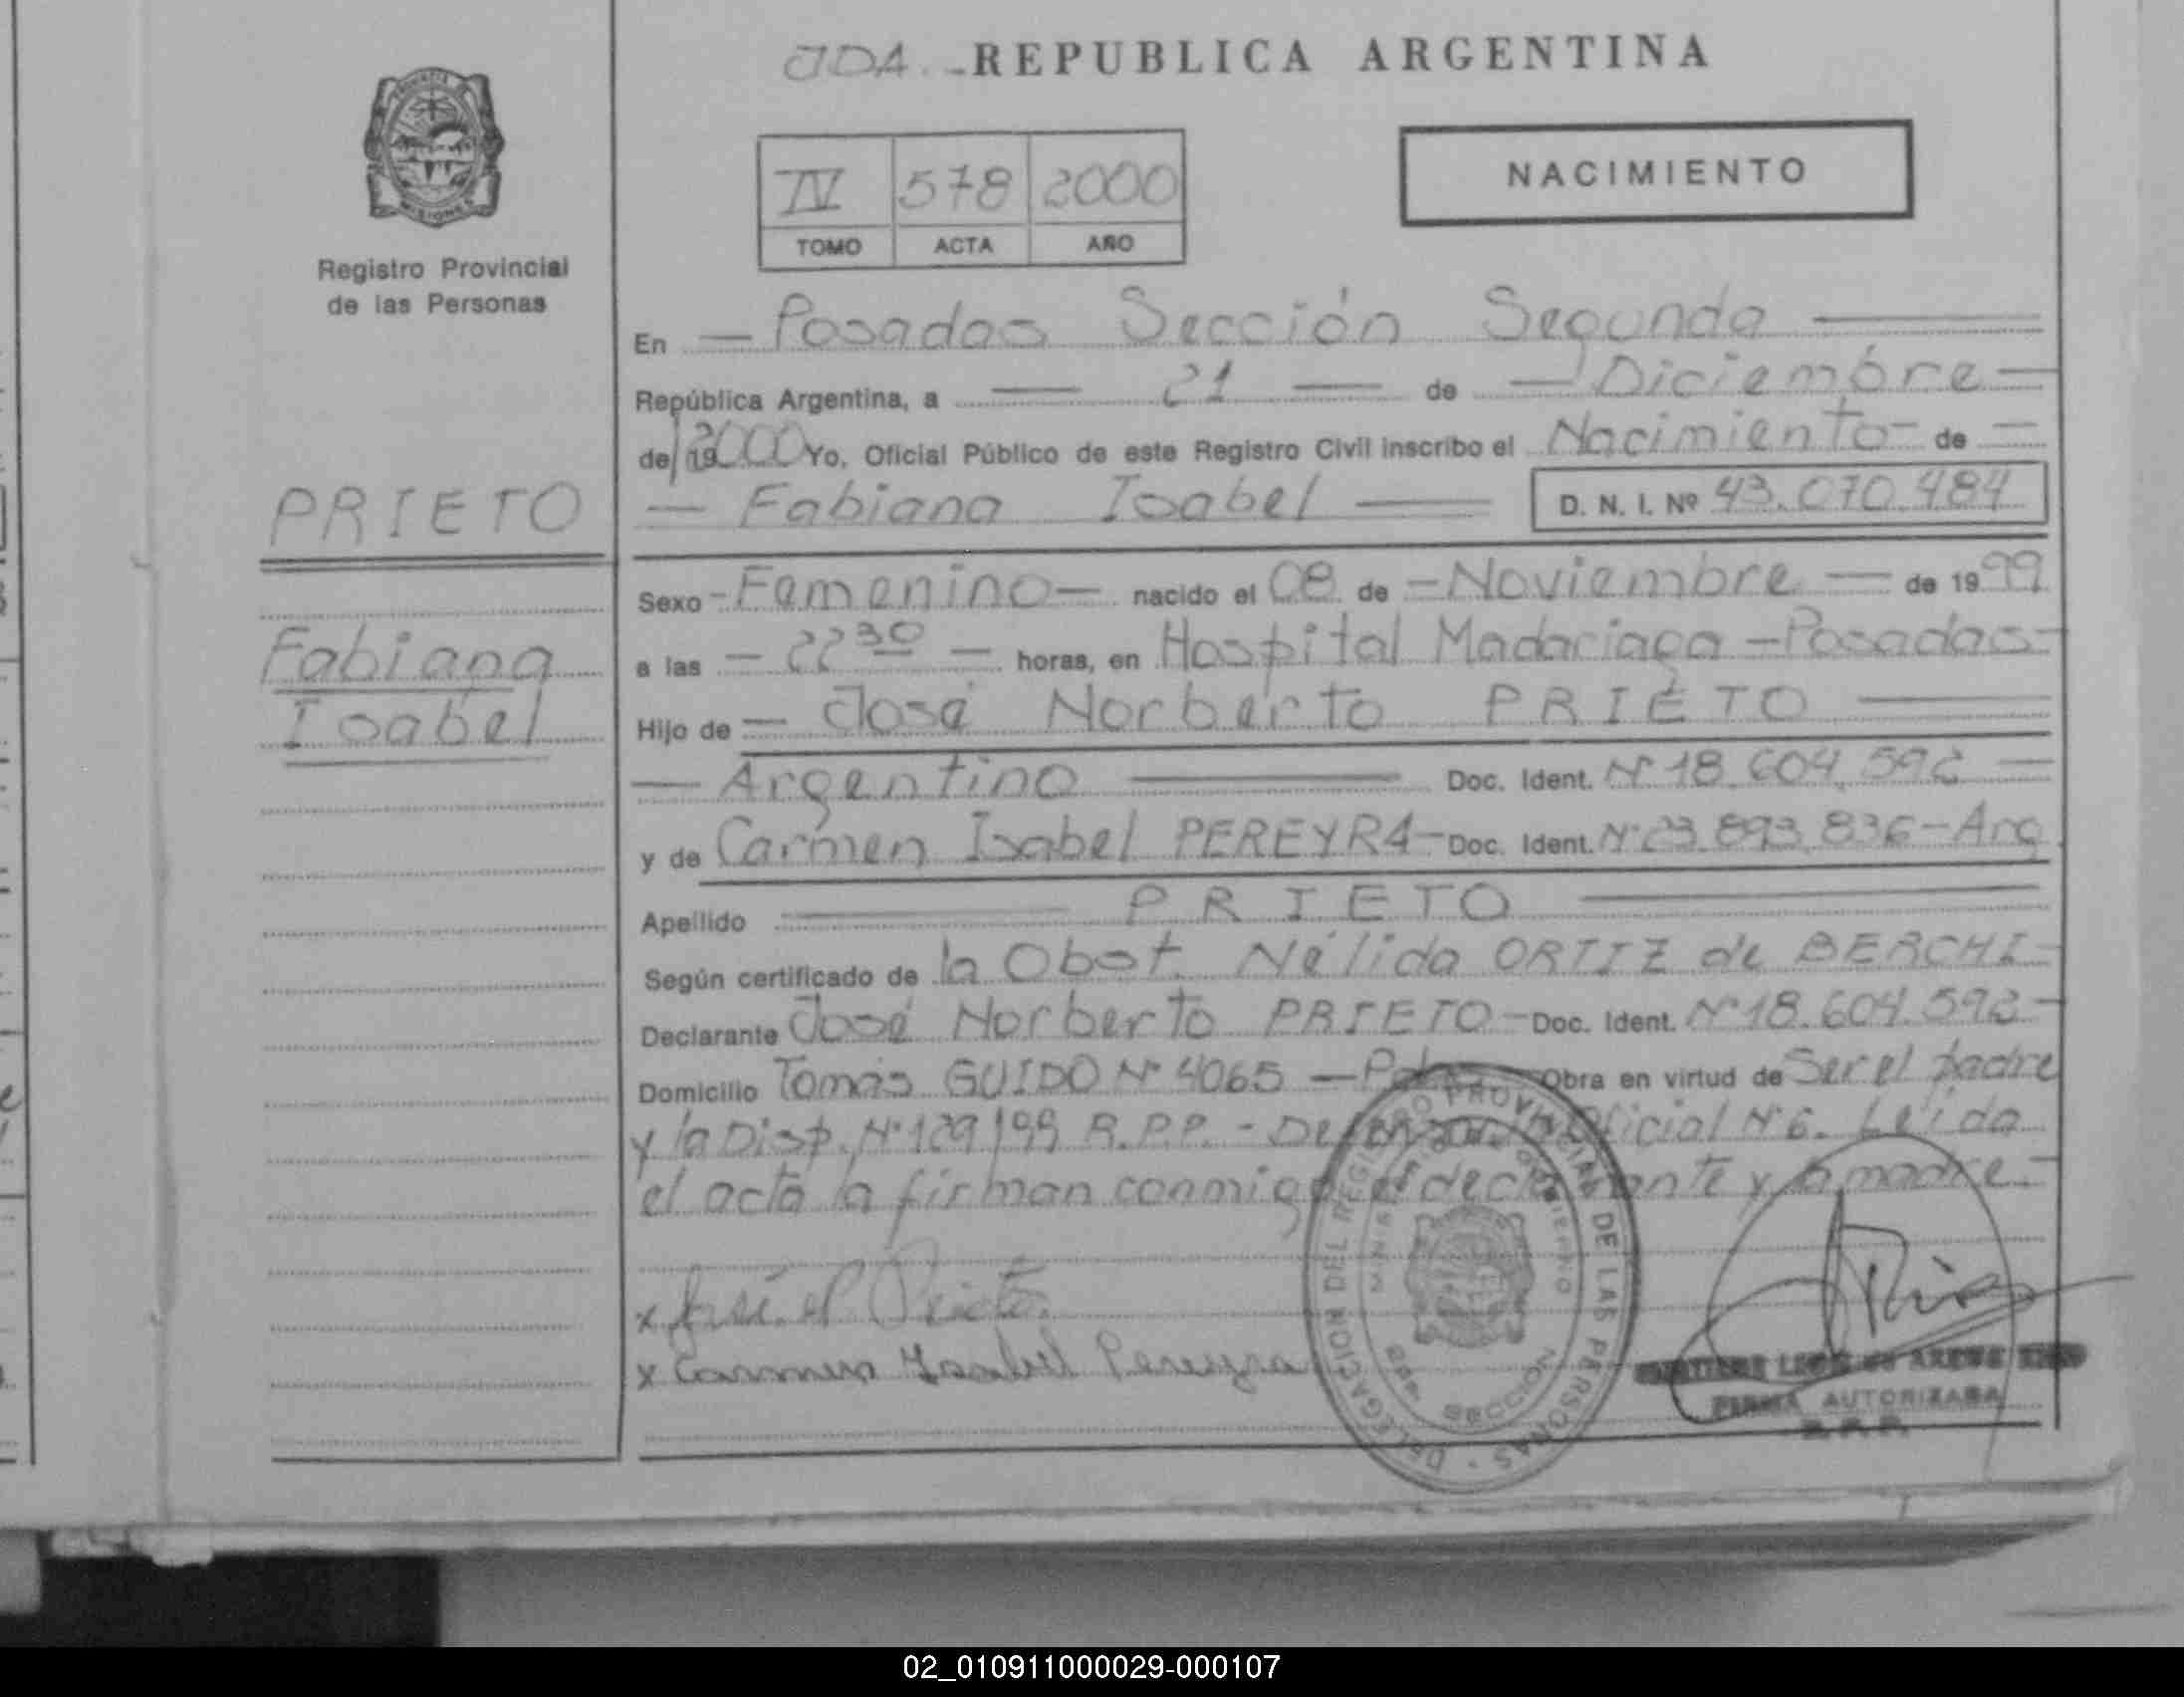 JDA.- REPUBLICA ARGENTINA
PROVINCIA DE
MISIONES
Registro Provincial
de las Personas
IV 578 2000
TOMO ACTA AÑO
NACIMIENTO
En — Posadas Sección Segunda —
República Argentina, a — 21 — de — Diciembre —
de 19 2000 Yo, Oficial Público de este Registro Civil inscribo el Nacimiento - de —
— Fabiana Isabel —
D. N. I. Nº 43.070.484
PRIETO
Fabiana
Isabel
Sexo - Femenino — nacido el 08 de — Noviembre — de 1999
a las — 22 30 — horas, en Hospital Madariaga - Posadas -
Hijo de — José Norberto PRIETO —
— Argentino — Doc. Ident. Nº 18.604.592 —
y de Carmen Isabel PEREYRA - Doc. Ident. Nº 23.893.836 - Arg
Apellido — PRIETO —
Según certificado de la Obst. Nélida ORTIZ de BERCHI -
Declarante José Norberto PRIETO - Doc. Ident. Nº 18.604.592 -
Domicilio Tomás GUIDO Nº 4065 — Obra en virtud de Ser el padre
y la Disp. Nº 129/99 R.P.P. - Oficial Nº 6. Leída
el acta la firman conmigo el declarante y la madre.-
x José N. Prieto.
x Carmen Isabel Pereyra
DELEGACION DEL REGISTRO PROVINCIAL DE LAS PERSONAS
MINISTERIO DE GOBIERNO
SECCION
FIRMA AUTORIZADA
R. P. P.
02_010911000029-000107